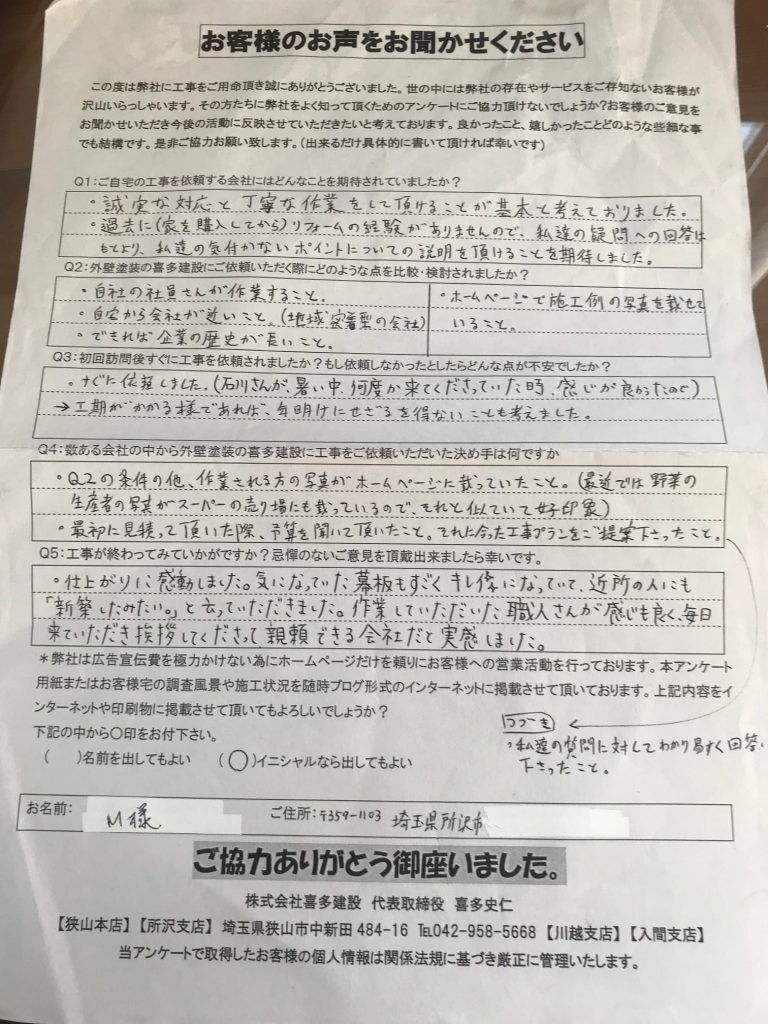 お客様のお声をお聞かせください
この度は弊社に工事をご用命頂き誠にありがとうございました。世の中には弊社の存在やサービスをご存知ないお客様が
沢山いらっしゃいます。その方たちに弊社をよく知って頂くためのアンケートにご協力頂けないでしょうか?お客様のご意見を
お聞かせいただき今後の活動に反映させていただきたいと考えております。良かったこと、嬉しかったことどのような些細な事
でも結構です。是非ご協力お願い致します。(出来るだけ具体的に書いて頂ければ幸いです)
Q1:ご自宅の工事を依頼する会社にはどんなことを期待されていましたか?
・誠実な対応と丁寧な作業をして頂けることが基本と考えておりました。
・過去に(家を購入してから)リフォームの経験がありませんので、私達の疑問への回答は
もとより、私達の気付かないポイントについての説明を頂けることを期待しました。
Q2:外壁塗装の喜多建設にご依頼いただく際にどのような点を比較・検討されましたか?
・自社の社員さんが作業すること。
・自宅から会社が近いこと。(地域密着型の会社)
・できれば企業の歴史が長いこと。
・ホームページで施工例の写真を載せて
いること。
Q3:初回訪問後すぐに工事を依頼されましたか?もし依頼しなかったとしたらどんな点が不安でしたか?
・すぐに依頼しました。(石川さんが、暑い中、何度か来てくださっていた時、感じが良かったので)
→工期がかかる様であれば、年明けにせざるを得ないことも考えました。
Q4:数ある会社の中から外壁塗装の喜多建設に工事をご依頼いただいた決め手は何ですか
・Q2の条件の他、作業される方の写真がホームページに載っていたこと。(最近では野菜の
生産者の写真がスーパーの売り場にも載っているので、それと似ていて好印象)
・最初に見積って頂いた際、予算を聞いて頂いたこと。それに合った工事プランをご提案下さったこと。
Q5:工事が終わってみていかがですか?忌憚のないご意見を頂戴出来ましたら幸いです。
・仕上がりに感動しました。気になっていた幕板もすごくキレイになっていて、近所の人にも
「新築したみたい。」と言っていただきました。作業していただいた職人さんが感じも良く、毎日
来ていただき挨拶してくださって親頼できる会社だと実感しました。
*弊社は広告宣伝費を極力かけない為にホームページだけを頼りにお客様への営業活動を行っております。本アンケート
用紙またはお客様宅の調査風景や施工状況を随時ブログ形式のインターネットに掲載させて頂いております。上記内容をイ
ンターネットや印刷物に掲載させて頂いてもよろしいでしょうか?
下記の中から○印をお付下さい。
( )名前を出してもよい (○)イニシャルなら出してもよい
つづき
・私達の質問に対してわかり易すく回答
下さったこと。
お名前: M様 ご住所:〒359-1103 埼玉県所沢市
ご協力ありがとう御座いました。
株式会社喜多建設 代表取締役 喜多史仁
【狭山本店】【所沢支店】埼玉県狭山市中新田484-16 ℡042-958-5668【川越支店】【入間支店】
当アンケートで取得したお客様の個人情報は関係法規に基づき厳正に管理いたします。